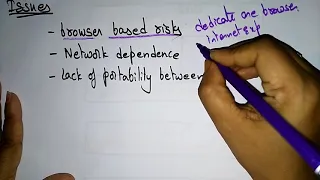 Issues
- browser based risks
dedicate one browser
Internet Exp
- Network dependence
- Lack of portability between